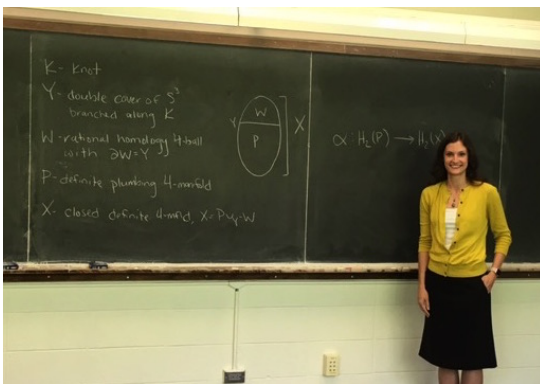 K - knot
Y - double cover of S³
branched along K
W - rational homology 4-ball
with ∂W = Y
P - definite plumbing 4-manifold
X - closed definite 4-mfld, X = P ∪_Y -W
Y
W
P
X
α: H₂(P) → H₂(X)